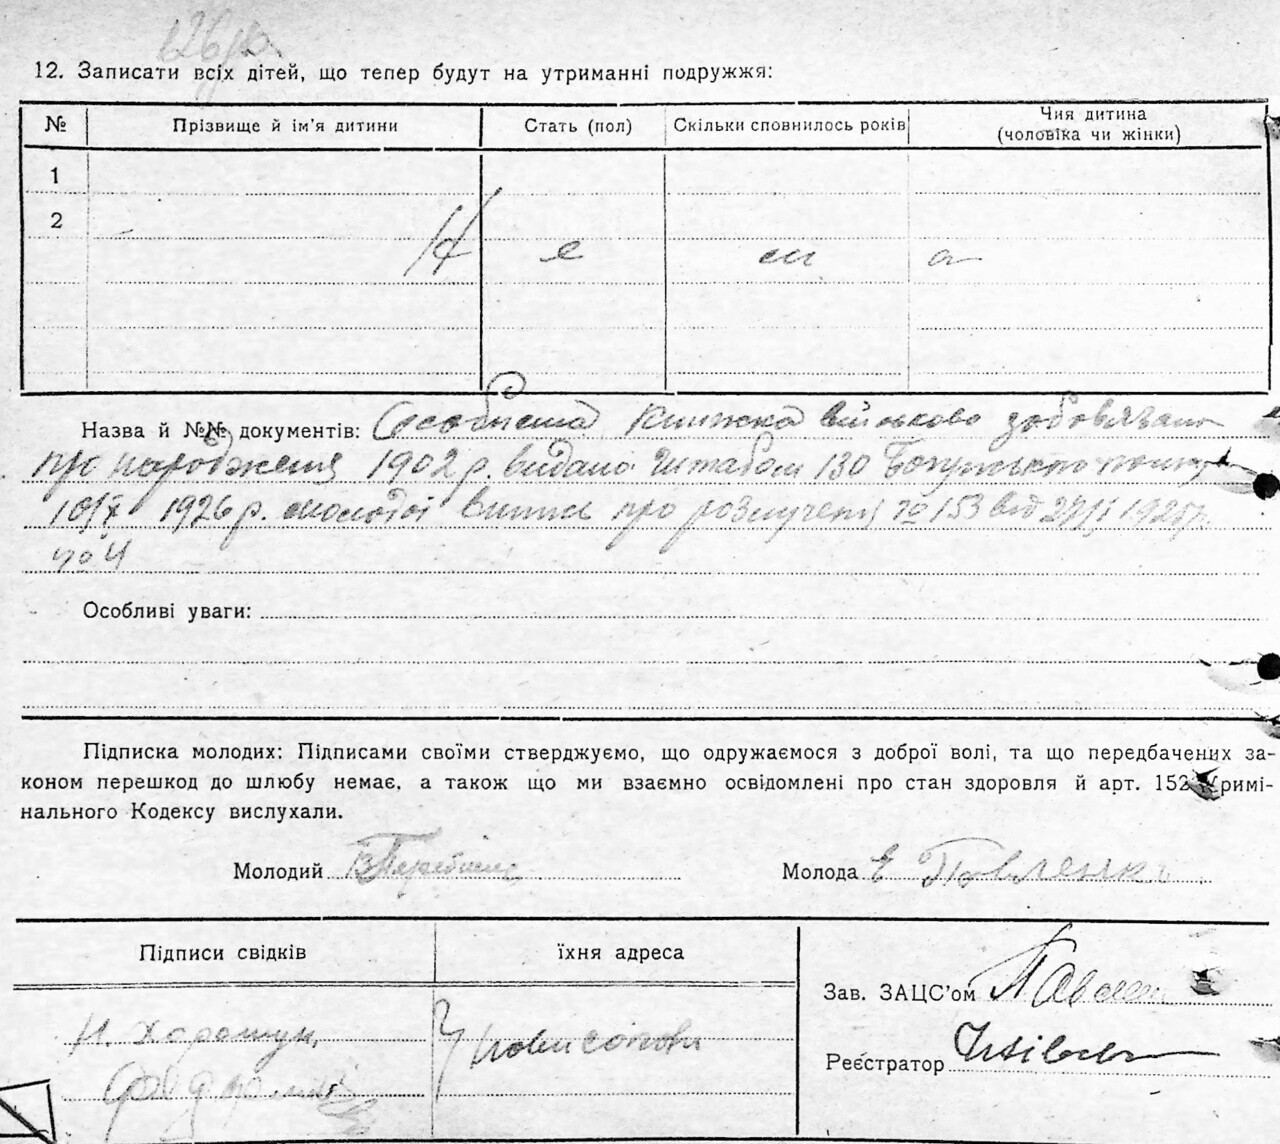 12. Записати всіх дітей, що тепер будут на утриманні подружжя:
№ Прізвище й ім'я дитини Стать (пол) Скільки сповнилось років Чия дитина (чоловіка чи жінки)
1
2
Н е м а
Назва й №№ документів: Особиста книжка військово зобовязан
про народження 1902 р. видано Штабом 130 Богунського полку
10/X 1926 р. молодої виписк про розлучення № 153 від
Особливі уваги:
Підписка молодих: Підписами своїми стверджуємо, що одружаємося з доброї волі, та що передбачених за-
коном перешкод до шлюбу немає, а також що ми взаємно освідомлені про стан здоровля й арт. 152 Кримі-
нального Кодексу вислухали.
Молодий Молода Е Павленко
Підписи свідків їхня адреса
Зав. ЗАЦС'ом
Н. Хорошун
Реєстратор